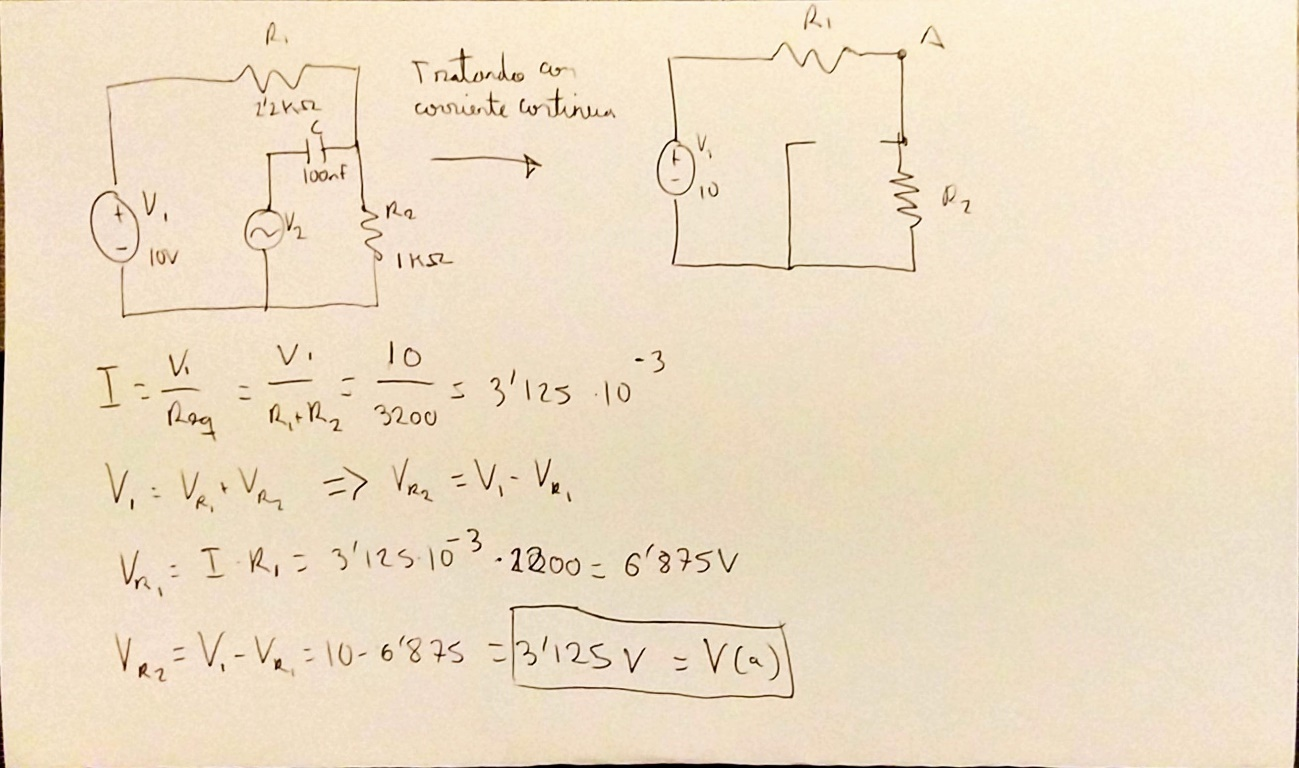 R₁
2'2KΩ
C
100nf
V₁
10V
V₂
R₂
1KΩ
Tratando con
corriente continua
R₁
A
V₁
10
R₂
I = V₁/Req = V₁/(R₁+R₂) = 10/3200 = 3'125 · 10⁻³
V₁ = V_R₁ + V_R₂ => V_R₂ = V₁ - V_R₁
V_R₁ = I · R₁ = 3'125·10⁻³ · 2200 = 6'875V
V_R₂ = V₁ - V_R₁ = 10 - 6'875 = 3'125 V = V(a)